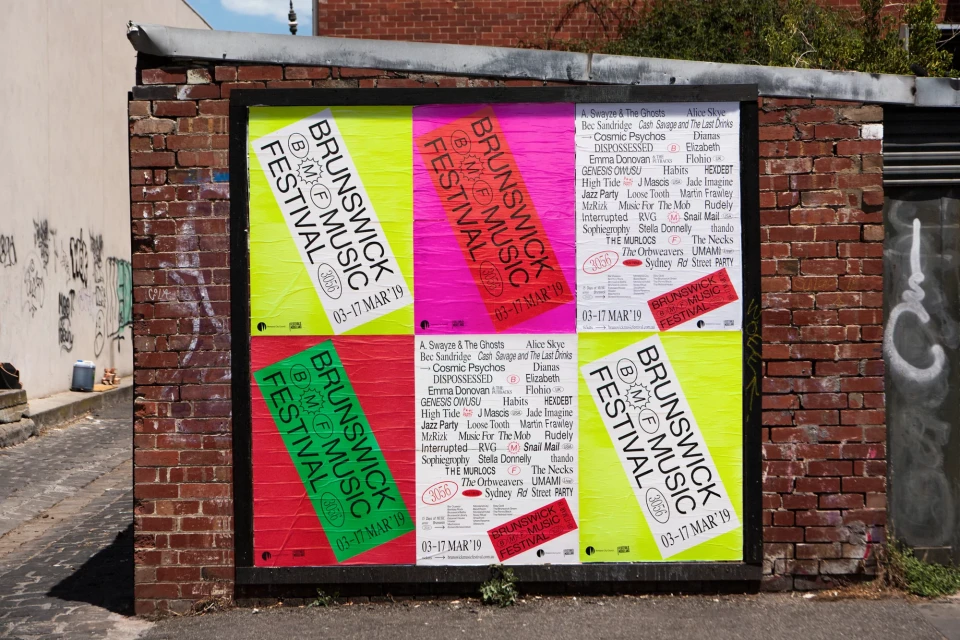 BRUNSWICK
B M F MUSIC
FESTIVAL 3056
03–17 MAR'19
BRUNSWICK
B M F MUSIC
FESTIVAL 3056
03–17 MAR'19
A. Swayze & The Ghosts Alice Skye
Bec Sandridge Cash Savage and The Last Drinks
→ Cosmic Psychos Dianas
DISPOSSESSED B Elizabeth
Emma Donovan & THE PUTBACKS Flohio UK
GENESIS OWUSU Habits HEXDEBT
High Tide J Mascis USA Jade Imagine
Jazz Party Loose Tooth Martin Frawley
MzRizk Music For The Mob Rudely
Interrupted RVG M Snail Mail USA
Sophiegrophy Stella Donnelly thando
THE MURLOCS F The Necks
The Orbweavers UMAMI
3056 Sydney Rd Street PARTY
BRUNSWICK
B M F MUSIC
FESTIVAL
03–17 MAR'19
BRUNSWICK
B M F MUSIC
FESTIVAL 3056
03–17 MAR'19
A. Swayze & The Ghosts Alice Skye
Bec Sandridge Cash Savage and The Last Drinks
→ Cosmic Psychos Dianas
DISPOSSESSED B Elizabeth
Emma Donovan & THE PUTBACKS Flohio UK
GENESIS OWUSU Habits HEXDEBT
High Tide J Mascis USA Jade Imagine
Jazz Party Loose Tooth Martin Frawley
MzRizk Music For The Mob Rudely
Interrupted RVG M Snail Mail USA
Sophiegrophy Stella Donnelly thando
THE MURLOCS F The Necks
The Orbweavers UMAMI
3056 Sydney Rd Street PARTY
BRUNSWICK
B M F MUSIC
FESTIVAL
03–17 MAR'19
BRUNSWICK
B M F MUSIC
FESTIVAL 3056
03–17 MAR'19